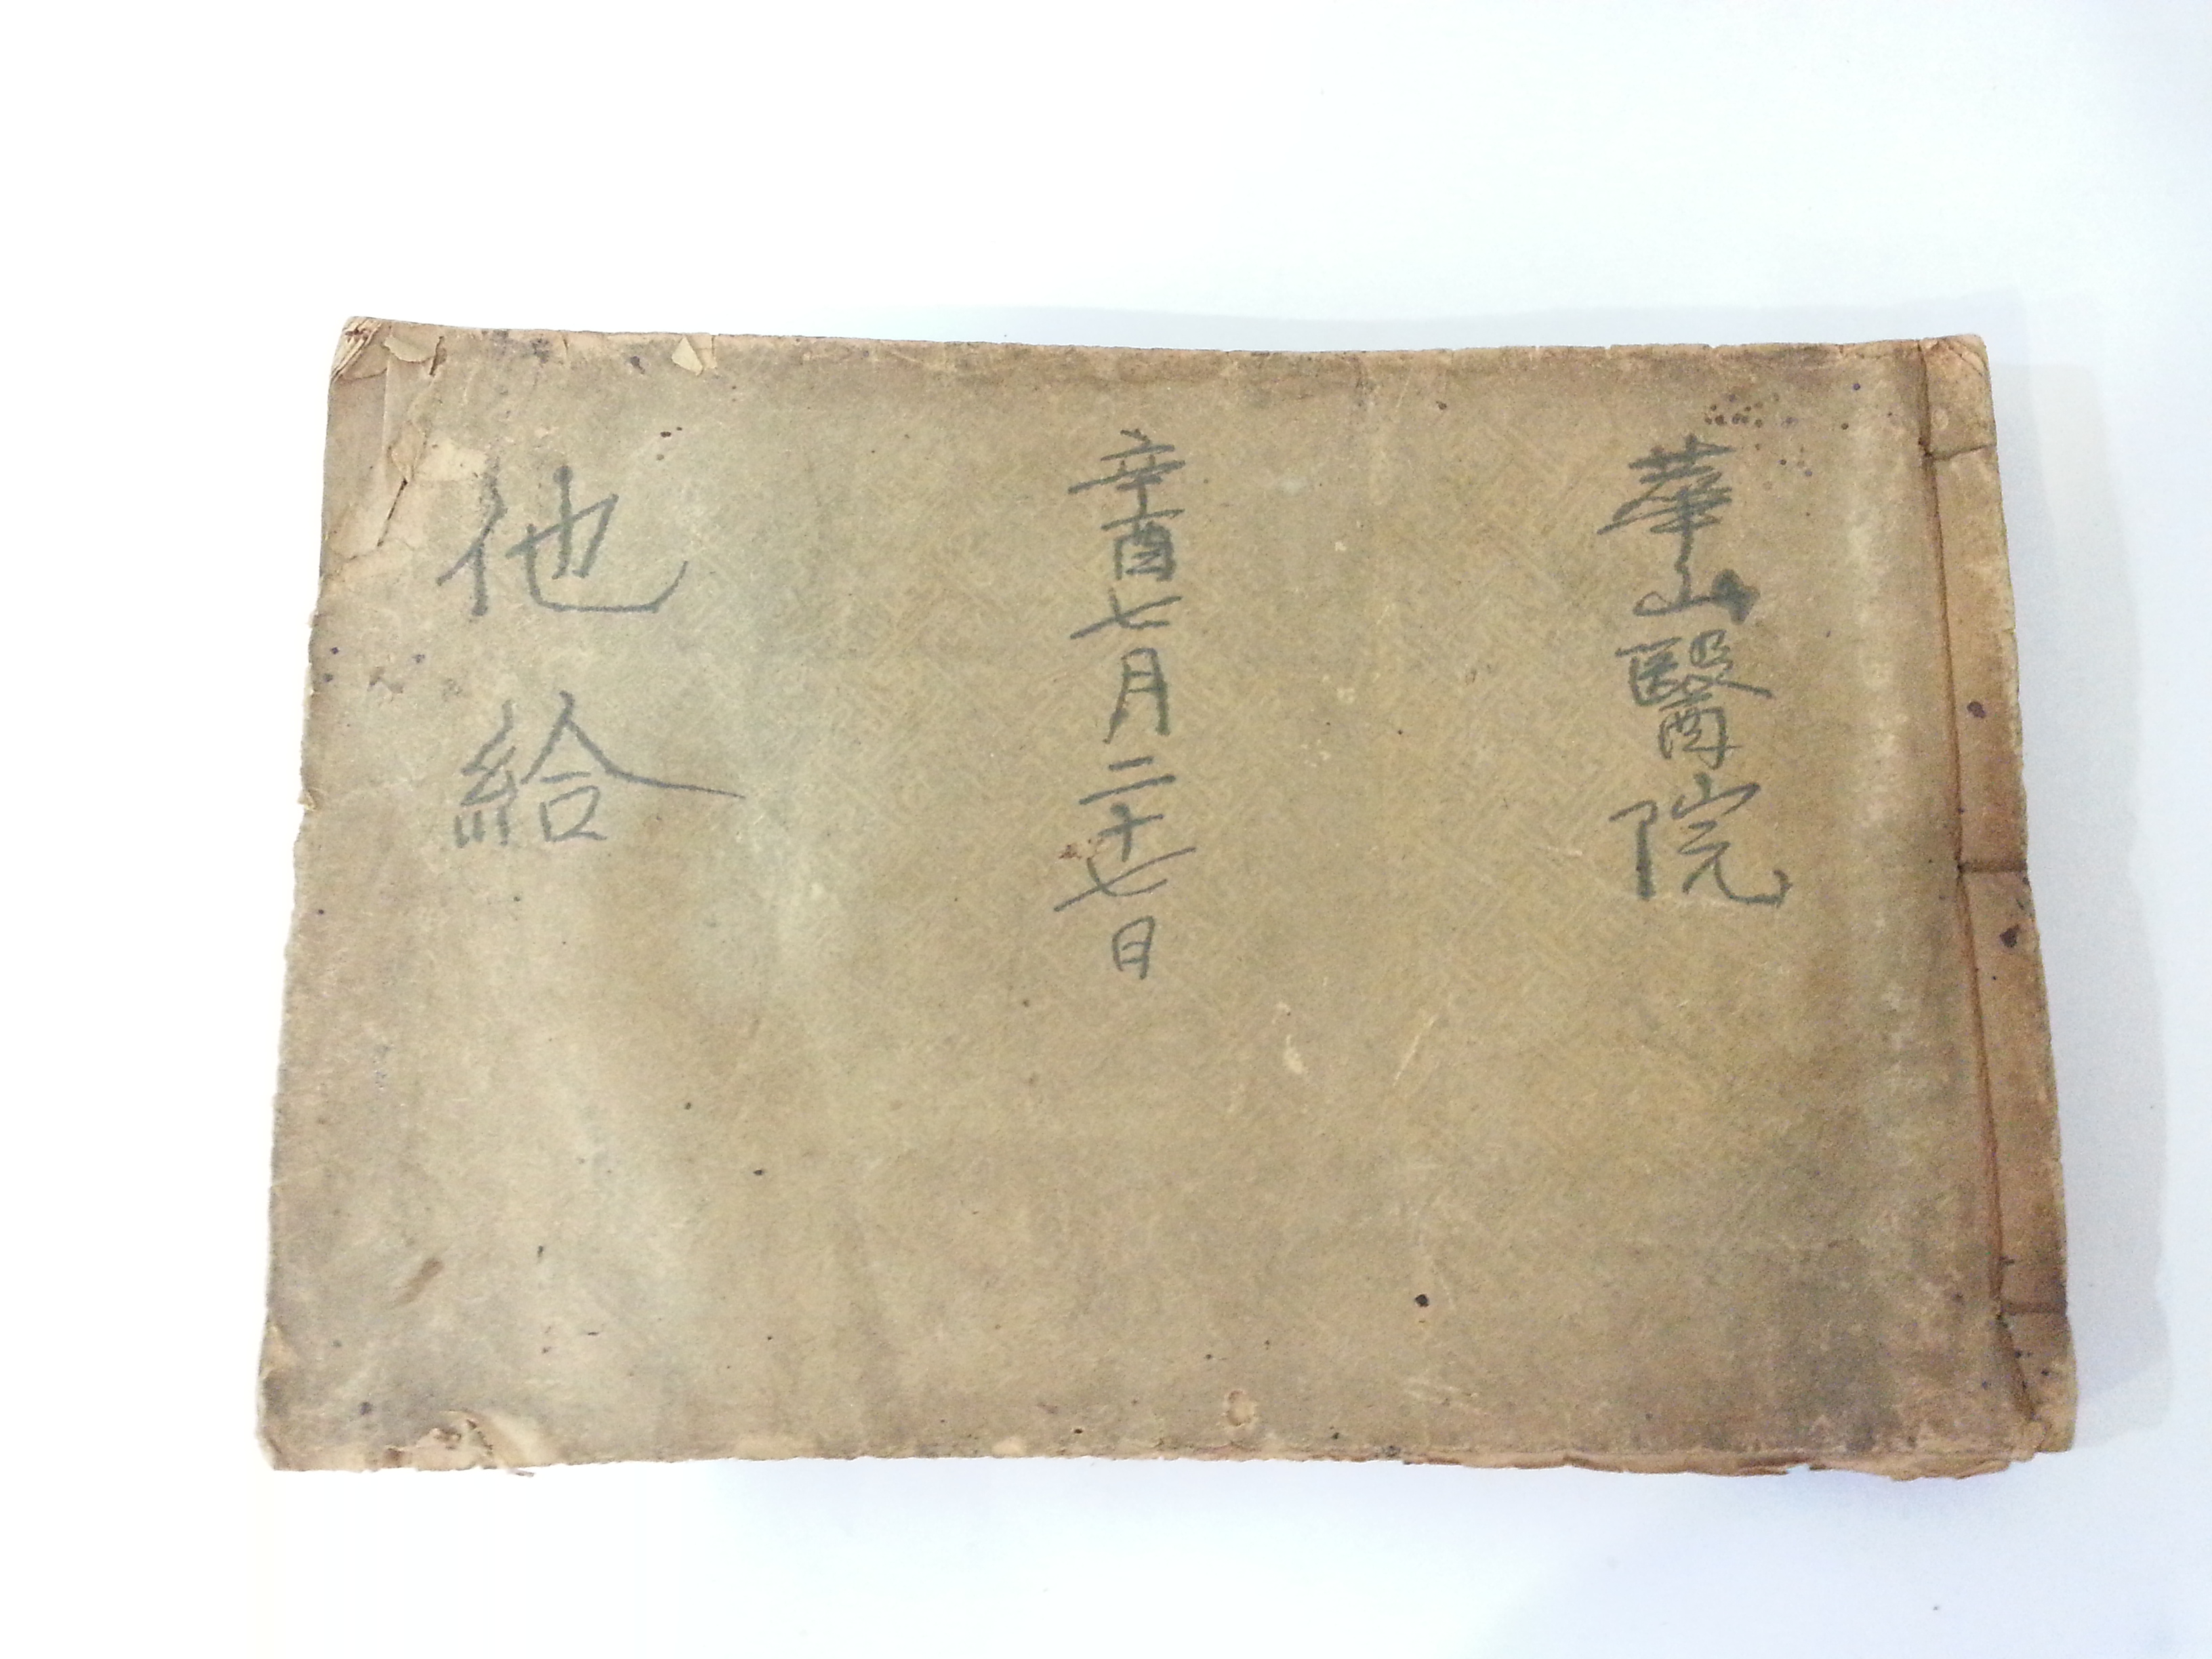 華山醫院
辛酉七月二十七日
他給